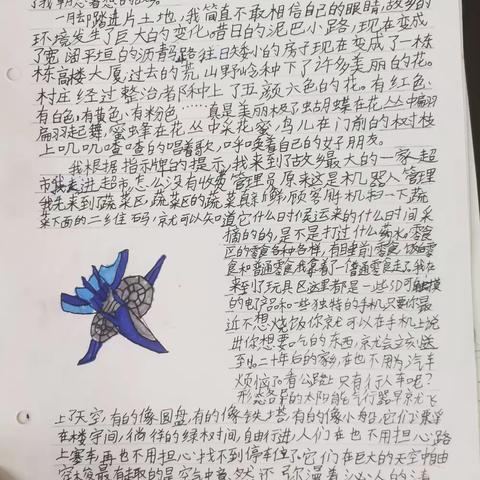 一脚踏进片土地,我简直不敢相信自己的眼睛,故乡的
环境发生了巨大的变化。昔日的泥巴小路,现在变成
了宽阔平坦的沥青路往日矮小的房子现在变成了一栋
栋高楼大厦,过去的荒山野岭种下了许多美丽的花。
村庄经过整治者种上了五颜六色的花。有红色、
有白色,有黄色、有粉色……真是美丽极了虫胡蝶在花丛中扁羽
扁羽起舞,蜜蜂在花丛中采花蜜,鸟儿在门前的树枝
上叽叽喳喳的唱着歌,呼唤着自己的女子朋友。
我根据指示牌的提示,我来到了故乡最大的一家超
市走进超市,怎么没有收费管理员原来这是机器人管理
我先来到了蔬菜区,蔬菜区的蔬菜真新鲜,顾客用手机扫一下蔬
菜下面的二维码,就可以知道它什么时候运来的什么时间采
摘的的,是不是打过什么药水。零食
区的零食各种各样,有
食和普通零食我拿着了一普通零食走了。我在
来到了玩具区这里都是一些3D可触摸
的电子产品和一些独特的手机,只要你最
近不想烧饭,你就可以在手机上说
出你想要吃的东西,就会立刻送
到二十年后的家,在也不用为汽车
烦恼了看公路上只有行人车呢?
形态各异的太阳能气行器早就飞
上了天空,有的像圆盘,有的像铁塔,有的像小船,它们乘
在楼宇间,徜徉的绿权时间,自由行进,人们在也不用担心路
上塞车再也不用担心找不到停车位了,它们在巨大的天空中自由